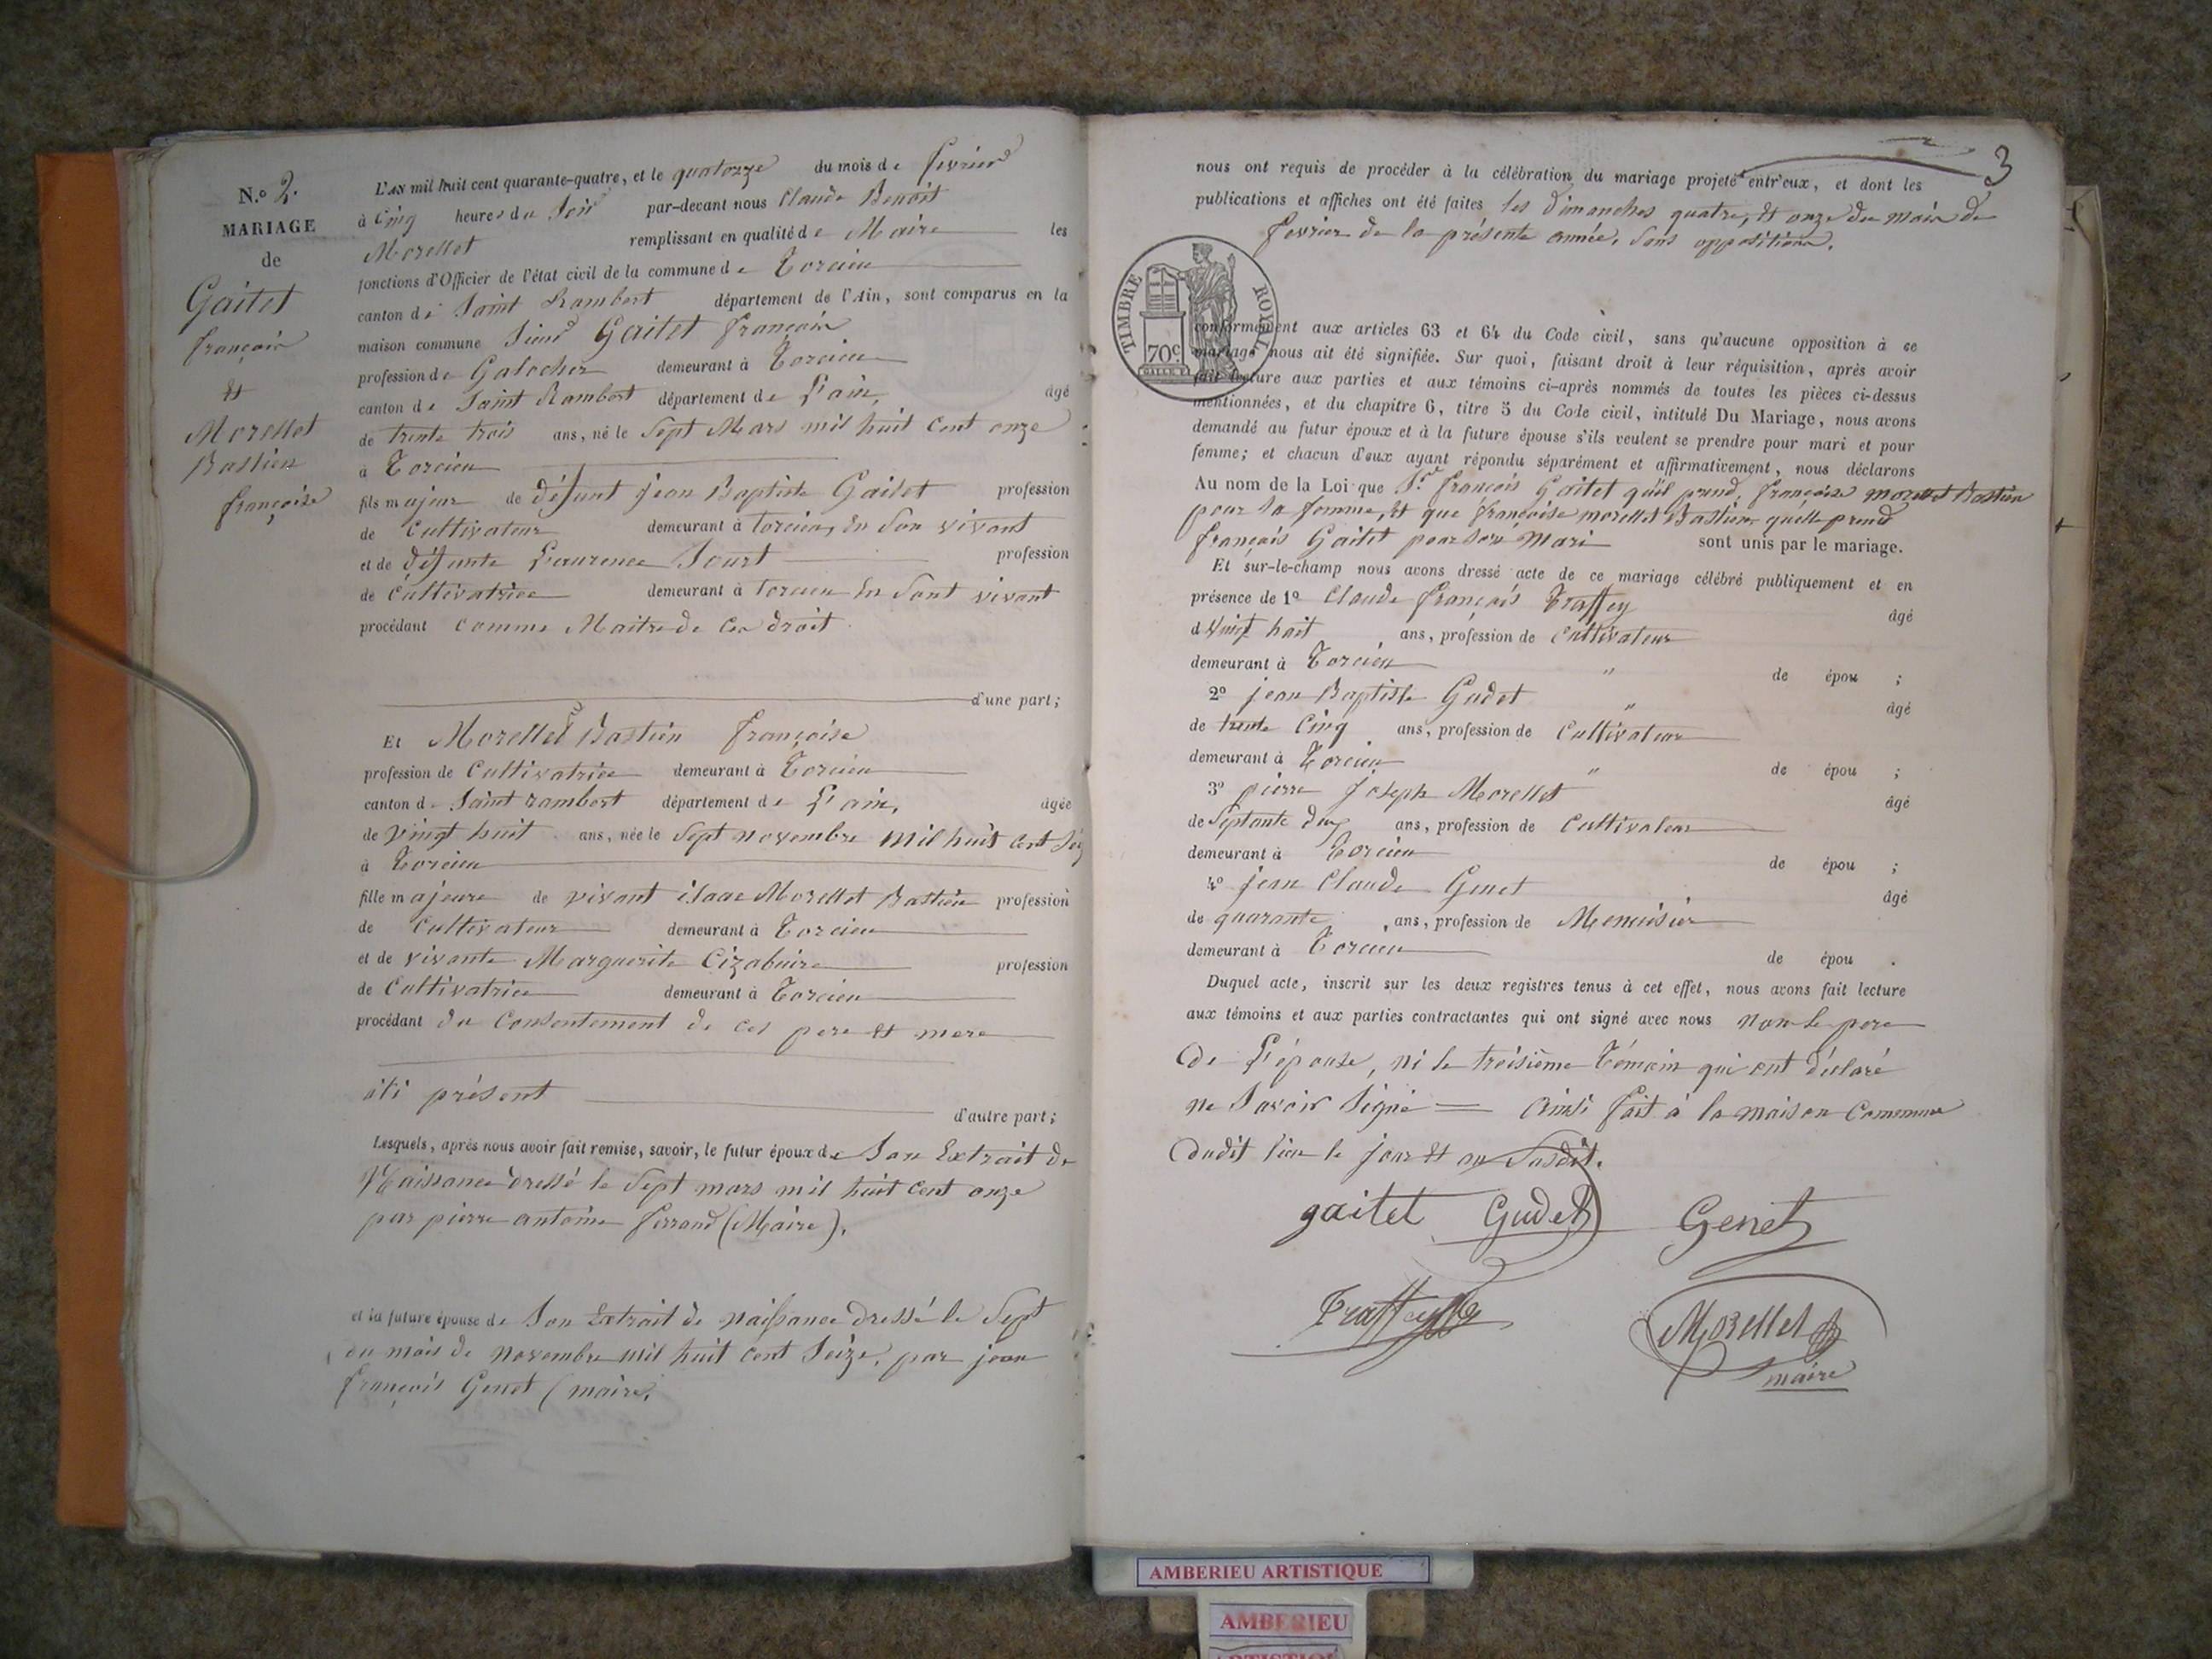 N.o 2.
MARIAGE
de
Gaitet
françois
et
Morellet
Bastien
françoise
L'AN mil huit cent quarante-quatre, et le quatorze du mois de fevrier
à Cinq heures du Soir par-devant nous Claude Benoît
Morellet remplissant en qualité de Maire les
fonctions d'Officier de l'état civil de la commune de Torcieu
canton de Saint Rambert département de l'Ain, sont comparus en la
maison commune Sieur Gaitet françois
profession de Galocher demeurant à Torcieu
canton de Saint Rambert département de L'ain, âgé
de trente trois ans, né le Sept Mars mil huit Cent onze
à Torcieu
fils majeur de défunt jean Baptiste Gaitet profession
de Cultivateur demeurant à torcieu, en Son vivant
et de défunte Laurence Sourt profession
de Cultivatrice demeurant à torcieu en Sont vivant
procédant comme Maitre de Ces droit
d'une part;
Et Morellet Bastien françoise
profession de Cultivatrice demeurant à Torcieu
canton de Saint rambert département de L'ain, âgée
de vingt huit ans, née le Sept novembre Mil huit Cent Seiz
à Torcieu
fille majeure de vivant isaac Morellet Bastien profession
de Cultivateur demeurant à Torcieu
et de vivante Marguerite Cizabuire profession
de Cultivatrice demeurant à Torcieu
procédant du Consentement de ces pere et mere
ici présent
d'autre part;
Lesquels, après nous avoir fait remise, savoir, le futur époux de Son Extrait de
Naissance dressé le Sept mars mil huit cent onze
par pierre antoine ferrand (Maire).
et la future épouse de Son Extrait de naissance dressé le Sept
du mois de novembre mil huit cent Seize, par jean
françois Genet (maire.
3
nous ont requis de procéder à la célébration du mariage projeté entr'eux, et dont les
publications et affiches ont été faites les Dimanches quatre, et onze du mois de
fevrier de la présente année, Sans opposition.
TIMBRE ROYAL
70c
conformément aux articles 63 et 64 du Code civil, sans qu'aucune opposition à ce
mariage nous ait été signifiée. Sur quoi, faisant droit à leur réquisition, après avoir
fait lecture aux parties et aux témoins ci-après nommés de toutes les pièces ci-dessus
mentionnées, et du chapitre 6, titre 5 du Code civil, intitulé Du Mariage, nous avons
demandé au futur époux et à la future épouse s'ils veulent se prendre pour mari et pour
femme; et chacun d'eux ayant répondu séparément et affirmativement, nous déclarons
Au nom de la Loi que Sr. françois Gaitet qu'il prend, françoise morellet Bastien
pour Sa femme, et que françoise morellet Bastien qu'elle prend
françois Gaitet pour Son Mari sont unis par le mariage.
Et sur-le-champ nous avons dressé acte de ce mariage célébré publiquement et en
présence de 1o Claude françois Traffey âgé
de Vingt huit ans, profession de Cultivateur
demeurant à Torcieu " de épou ;
2o jean Baptiste Gudet " âgé
de trente Cinq ans, profession de Cultivateur
demeurant à Torcieu " de épou ;
3o pierre joseph Morellet âgé
de Septante deux ans, profession de Cultivateur
demeurant à Torcieu de épou ;
4o jean Claude Genet âgé
de quarante ans, profession de Menuisier
demeurant à Torcieu de épou .
Duquel acte, inscrit sur les deux registres tenus à cet effet, nous avons fait lecture
aux témoins et aux parties contractantes qui ont signé avec nous non le pere
de L'épouse, ni le troisième Témoin qui ont déclaré
ne Savoir Signé = ainsi fait à la maison Commune
dudit lieu le jour et an Susdit.
gaitet Gudet Genet
Traffey
Morellet
maire
AMBERIEU ARTISTIQUE
AMBERIEU
ARTISTIQUE